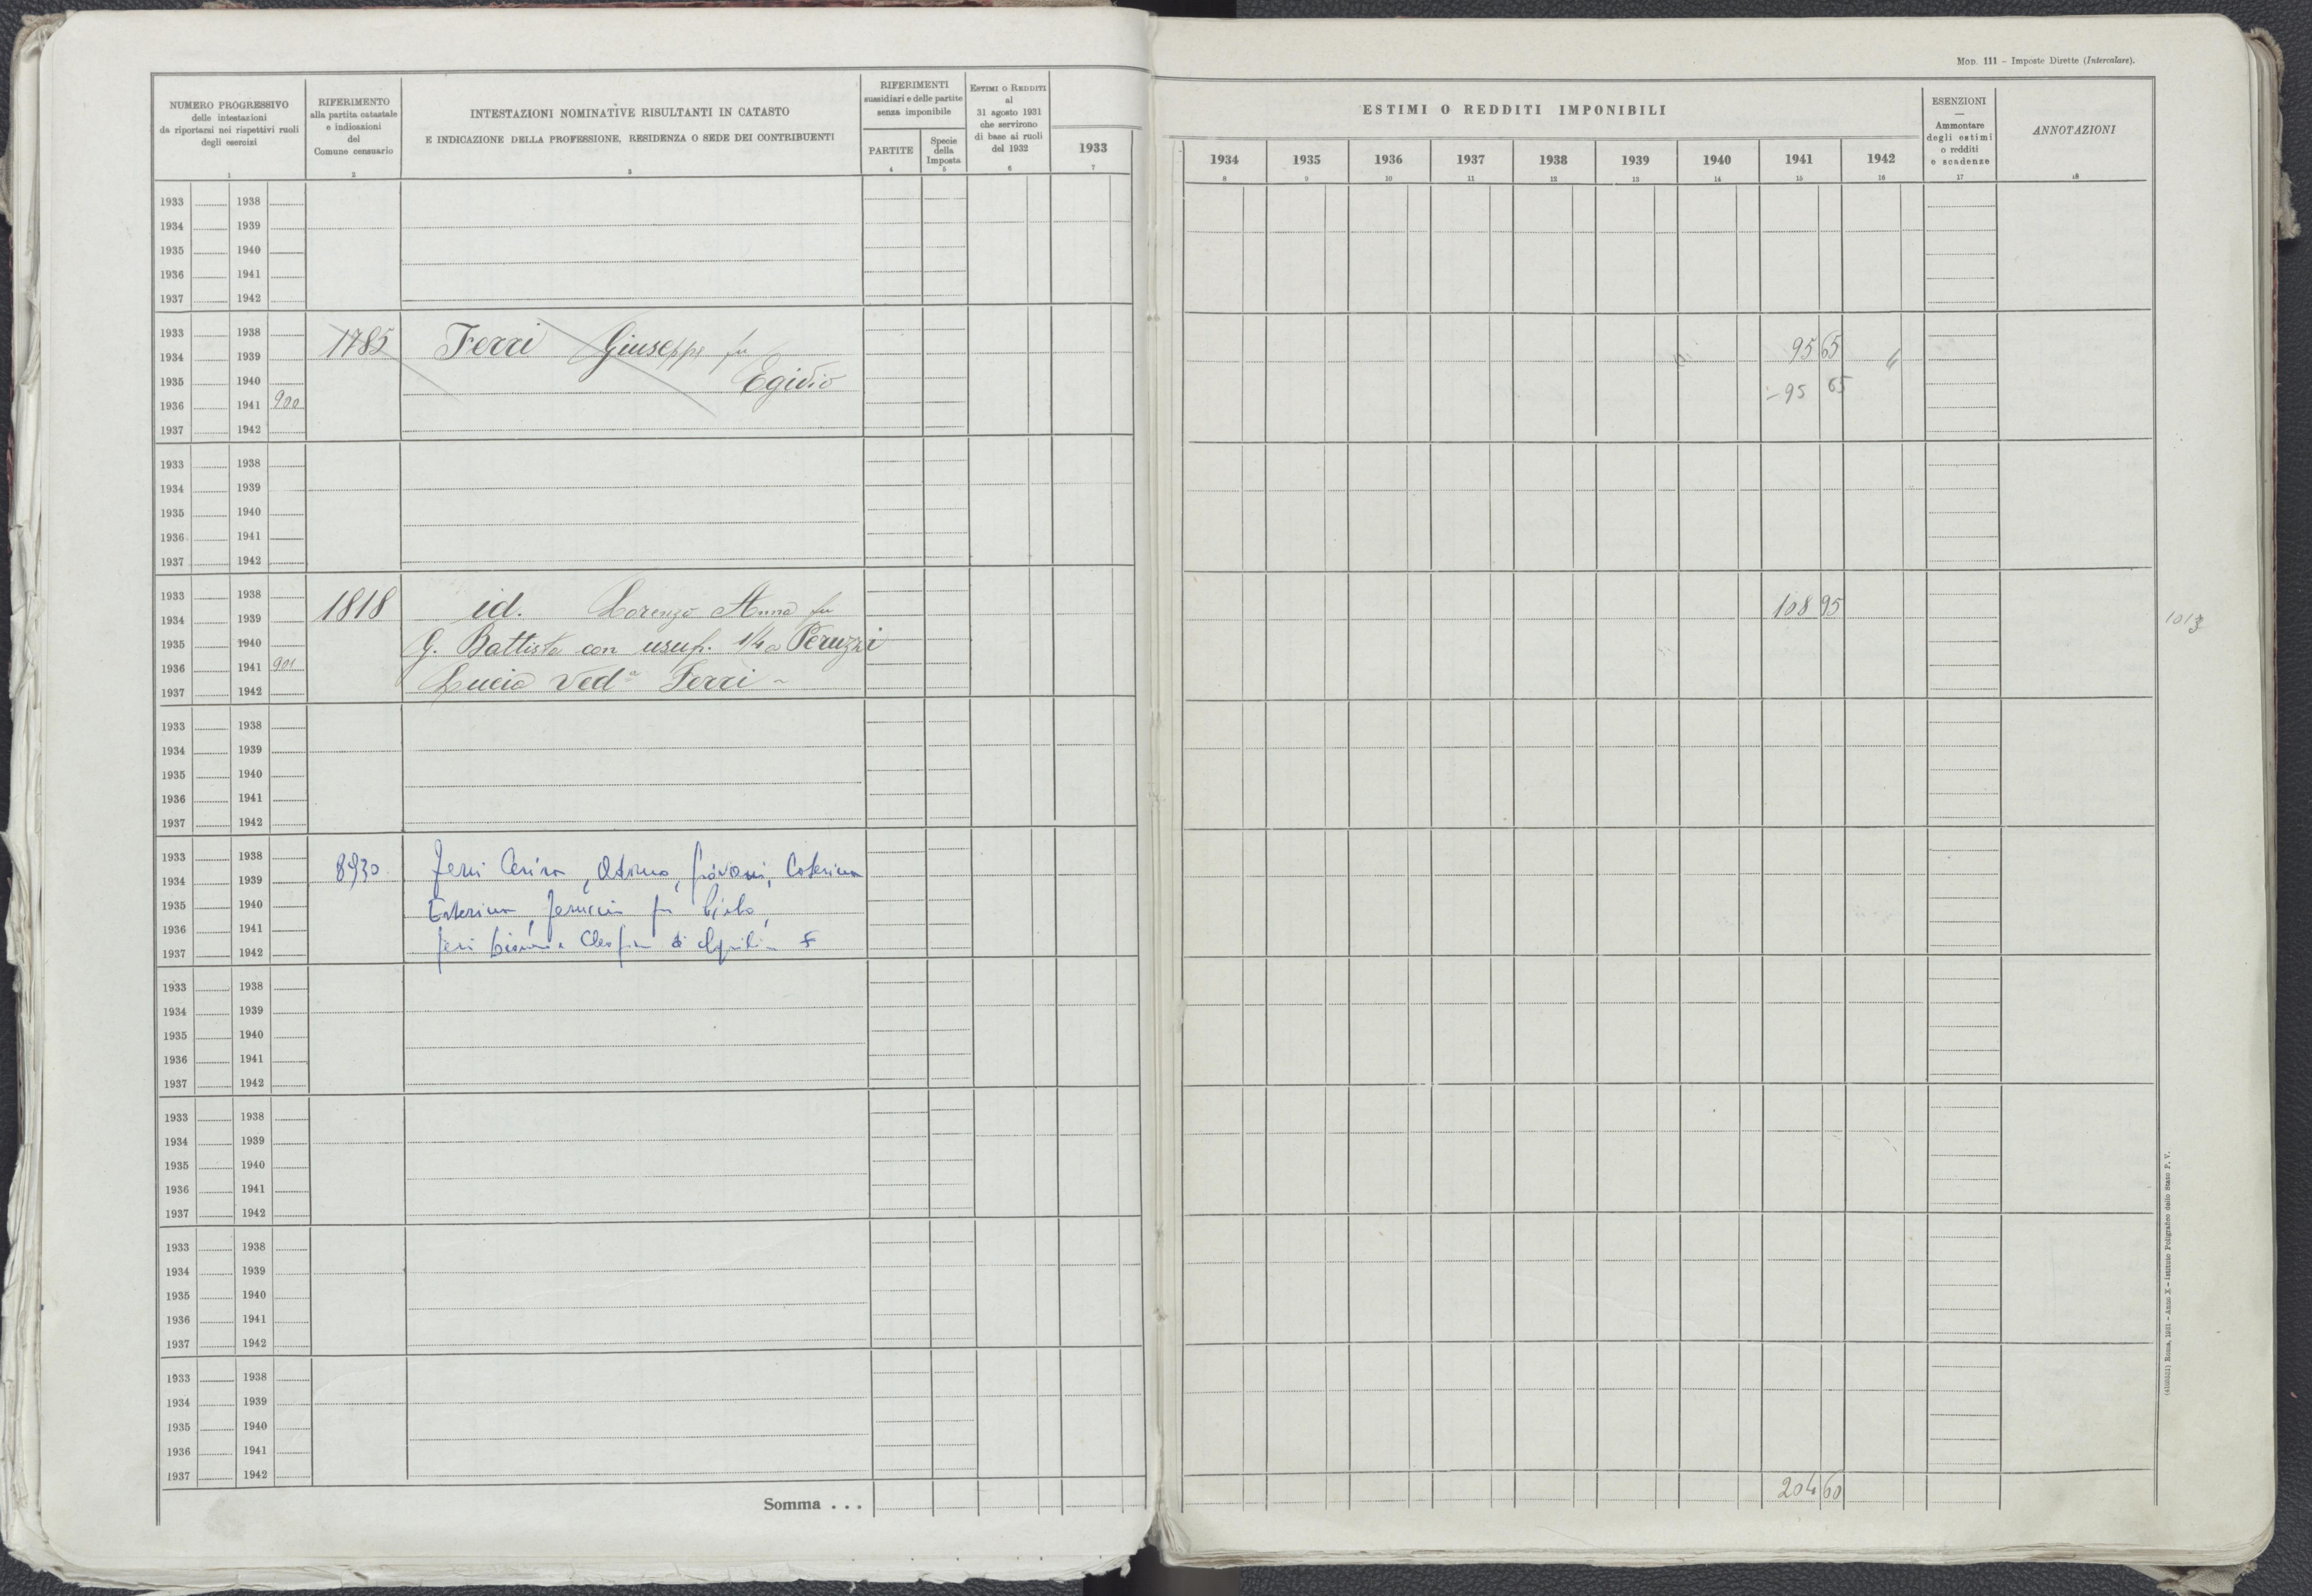 MOD. 111 - Imposte Dirette (Intercalare).
NUMERO PROGRESSIVO
delle intestazioni
da riportarsi nei rispettivi ruoli
degli esercizi
1
RIFERIMENTO
alla partita catastale
e indicazioni
del
Comune censuario
2
INTESTAZIONI NOMINATIVE RISULTANTI IN CATASTO
E INDICAZIONE DELLA PROFESSIONE, RESIDENZA O SEDE DEI CONTRIBUENTI
3
RIFERIMENTI
sussidiari e delle partite
senza imponibile
PARTITE
4
Specie
della
Imposta
5
ESTIMI O REDDITI
al
31 agosto 1931
che servirono
di base ai ruoli
del 1932
6
1933
7
ESTIMI O REDDITI IMPONIBILI
1934 1935 1936 1937 1938 1939 1940 1941 1942
8 9 10 11 12 13 14 15 16
ESENZIONI
—
Ammontare
degli estimi
o redditi
e scadenze
17
ANNOTAZIONI
18
1933 1938
1934 1939
1935 1940
1936 1941
1937 1942
1933 1938
1785 Ferri Giuseppe fu
1934 1939
95 65
Egidio
1935 1940
- 95 65
1936 1941 900
1937 1942
1933 1938
1934 1939
1935 1940
1936 1941
1937 1942
1933 1938
1818 id. Lorenzo Anna fu
108 95
1013
1934 1939
G. Battista con usuf. 1/4 a Peruzzi
1935 1940
1936 1941 901
Lucia Ved.a Ferri -
1937 1942
1933 1938
1934 1939
1935 1940
1936 1941
1937 1942
1933 1938
8930
1934 1939
Caterina
1935 1940
1936 1941
1937 1942
1933 1938
1934 1939
1935 1940
1936 1941
1937 1942
1933 1938
1934 1939
1935 1940
1936 1941
1937 1942
1933 1938
1934 1939
1935 1940
1936 1941
1937 1942
1933 1938
1934 1939
1935 1940
1936 1941
1937 1942
Somma . . .
204 60
Roma, 1931 - Anno X - Istituto Poligrafico dello Stato P. V.